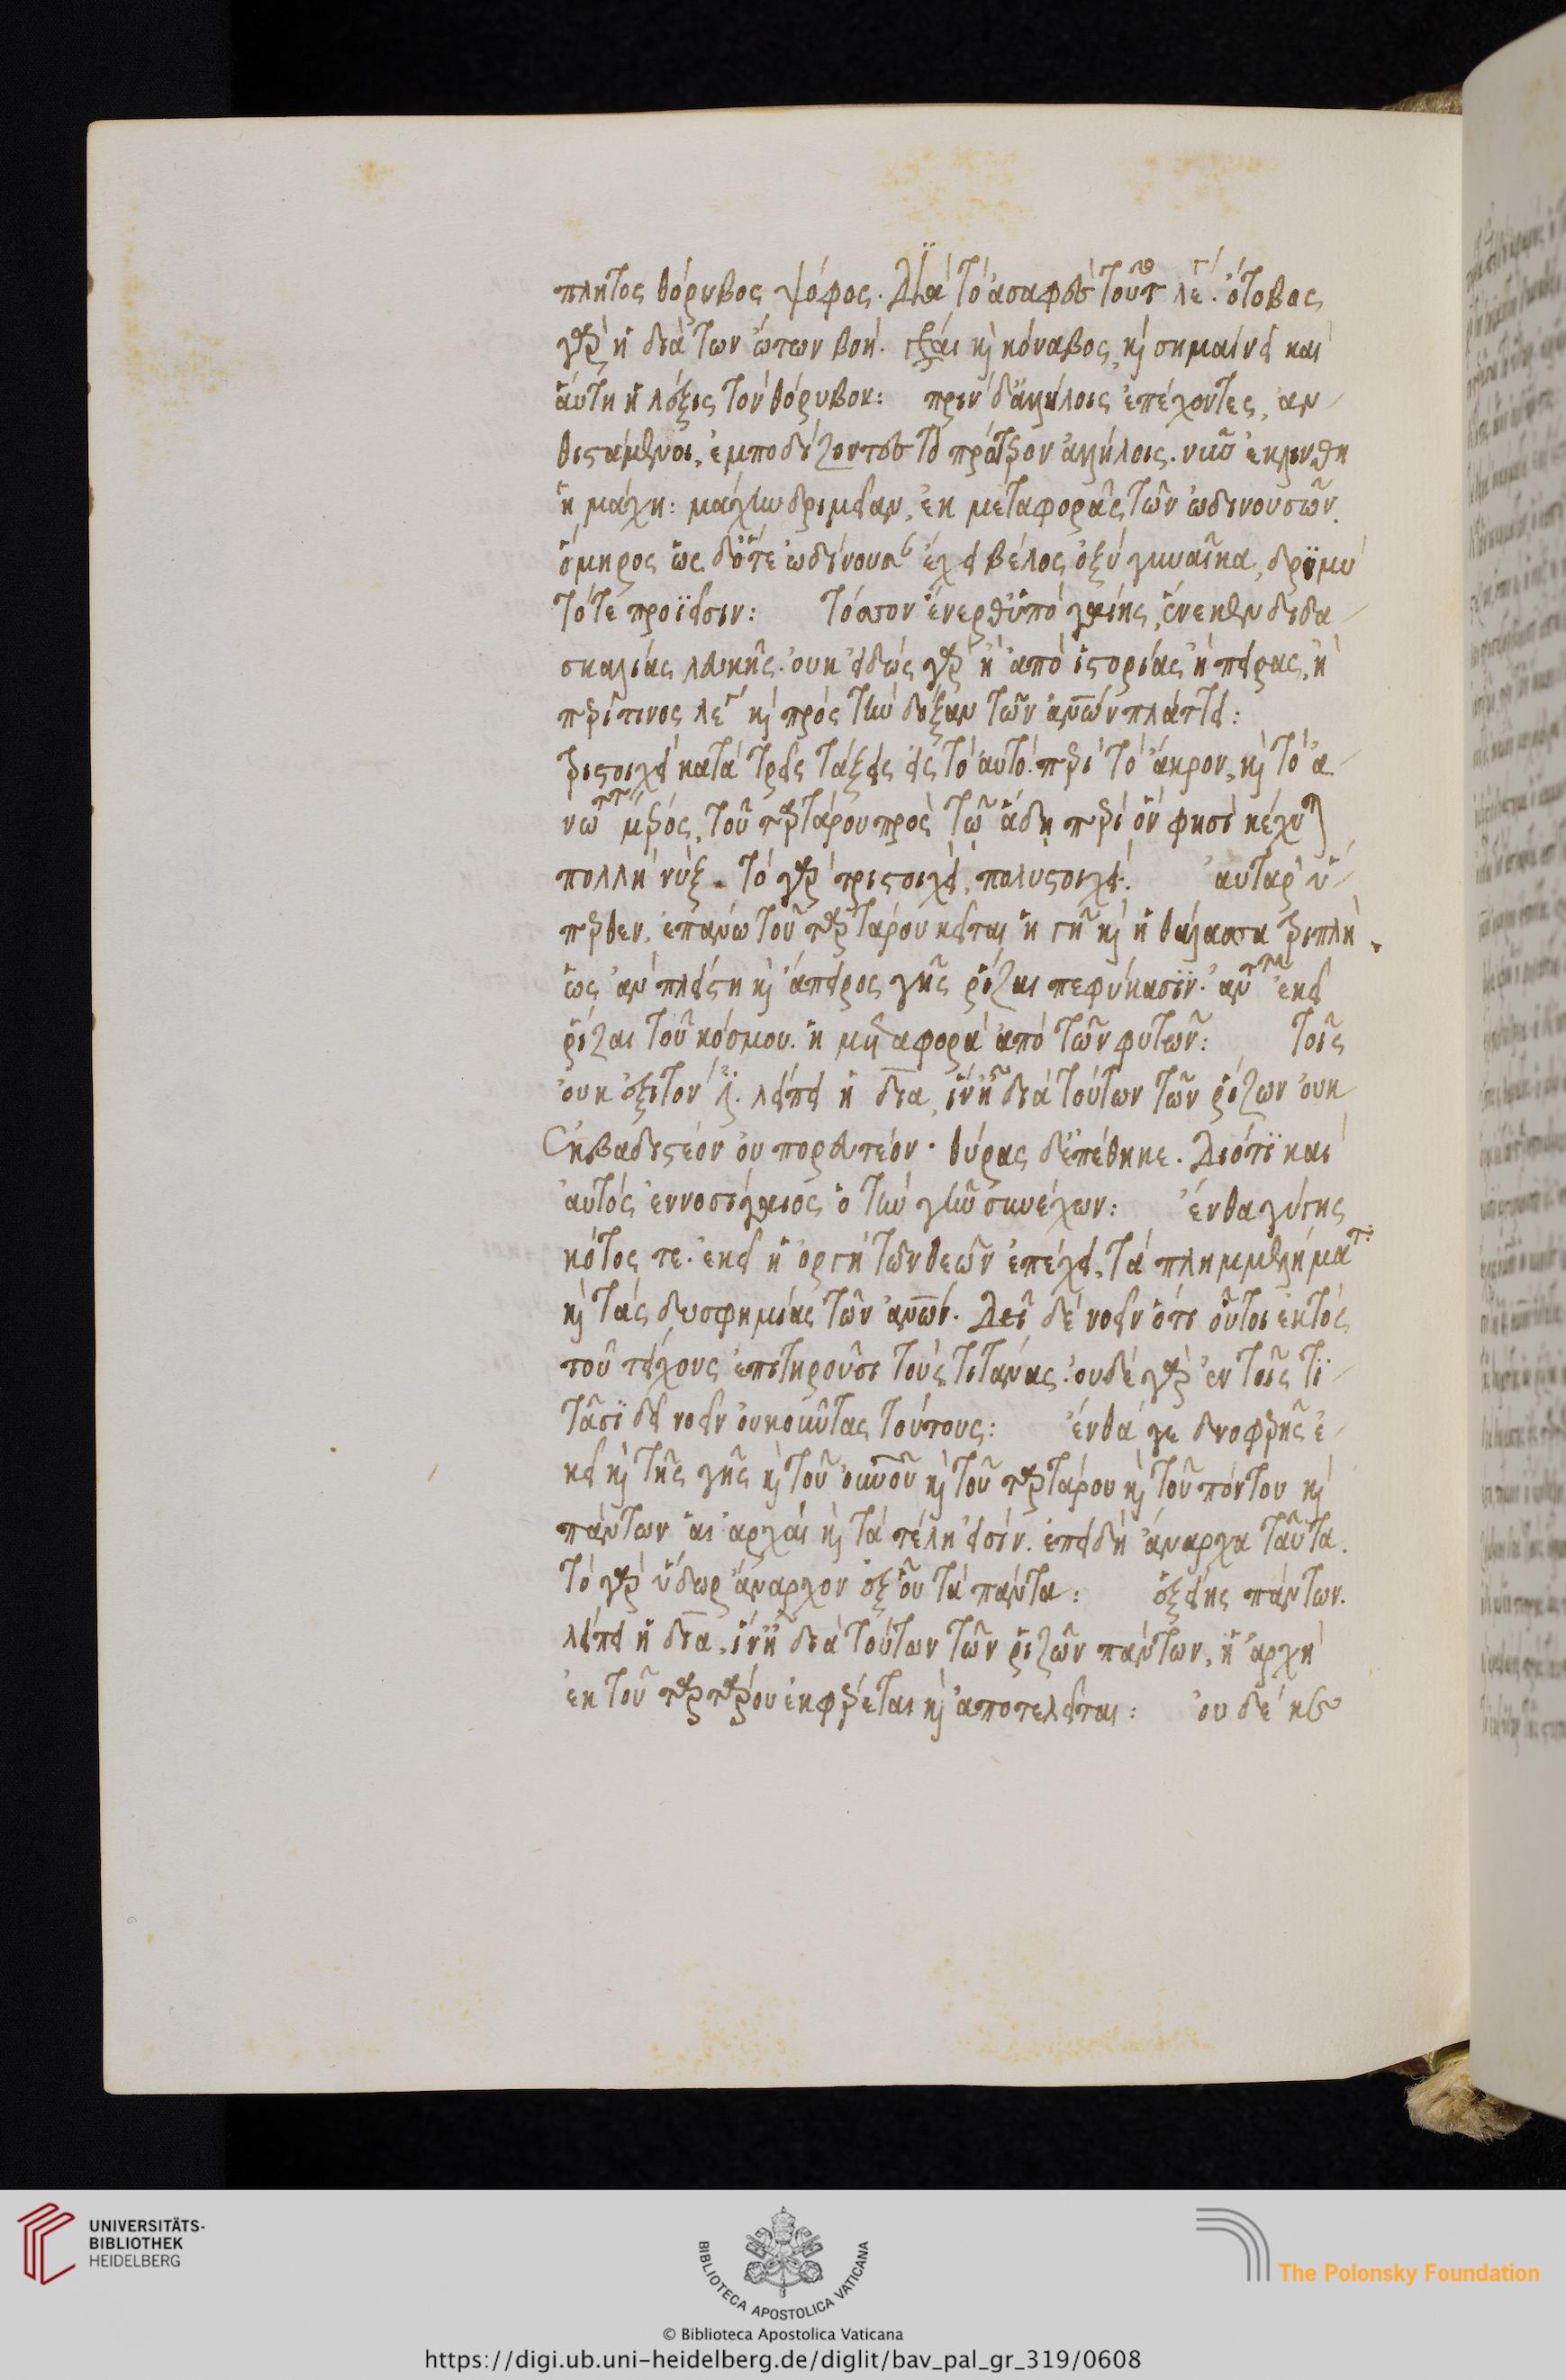 πλητος θόρυβος ψόφος. Διὰ τὸ ἀσαφὲς τοῦτο λέγει. ὄτοβος
γὰρ ἡ διὰ τῶν ὤτων βοή. καὶ κόναβος, καὶ σημαίνει καὶ
αὕτη ἡ λέξις τὸν θόρυβον: πρὶν δ' ἀλλήλοις ἐπέχοντες, ἀν
θιστάμενοι, ἐμποδίζοντες τὸ πρότερον ἀλλήλοις. νῦν ἐκλίνθη
ἡ μάχη: μάχην δριμεῖαν, ἐκ μεταφορᾶς τῶν ὠδινουσῶν.
ὅμηρος ὡς δ' ὅτε ὠδίνουσαν ἔχει βέλος ὀξὺ γυναῖκα, δριμὺ
τότε προϊεῖσιν: τόσσον ἔνερθ' ὑπὸ γαίης, ἕνεκεν διδα
σκαλίας οὐκ εἰδὼς γὰρ ἢ ἀπὸ ἱστορίας ἢ πείρας, ἢ
περί τινος λέγει καὶ πρὸς τὴν δόξαν τῶν ἀνων πλάττει:
τριστοιχεὶ κατὰ τρεῖς τάξεις εἰς τὸ αὐτὸ. περὶ τὸ ἄκρον, καὶ τὸ ἀ
νώτατον μέρος, τοῦ ταρτάρου πρὸς τῷ ἅδῃ περὶ ὃν φησὶ κέχυται
πολλὴ νύξ. τὸ γὰρ τριστοιχεὶ, πολυστοιχεί. αὐτὰρ ὕ
περθεν. ἐπάνω τοῦ ταρτάρου κεῖται ἡ γῆ καὶ ἡ θάλασσα
ὡς ἂν πλείστη καὶ ἄπειρος γῆς ῥίζαι πεφύκασιν. ἀντὶ τοῦ ἐκεῖ
ῥίζαι τοῦ κόσμου. ἡ μεταφορὰ ἀπὸ τῶν φυτῶν: τοῖς
οὐκ ἐξιτόν ἐστι. λείπει ἡ δια, ἵν' ᾖ διὰ τούτων τῶν ῥίζων οὐκ
ἐκβαδιστέον οὐ πορευτέον. θύρας δ' ἐπέθηκε. Διότι καὶ
αὐτὸς ἐννοσίγαιος ὁ τὴν γῆν συνέχων: ἔνθα γύγης
κότος τε. ἐκεῖ ἡ ὀργὴ τῶν θεῶν ἐπέχει, τὰ πλημμελήματα
καὶ τὰς δυσφημίας τῶν ἀνων. Δεῖ δὲ νοεῖν ὅτι οὗτοι ἐκτὸς
τοῦ τείχους ἐπιτηροῦσι τοὺς τιτάνας. οὐδὲ γὰρ ἐν τοῖς τι
τᾶσι δεῖ νοεῖν οἰκοῦντας τούτους: ἔνθα γε δνοφερῆς ἐ
κεῖ καὶ τῆς γῆς καὶ τοῦ οὐνοῦ καὶ τοῦ ταρτάρου καὶ τοῦ πόντου καὶ
πάντων αἱ ἀρχαὶ καὶ τὰ τέλη εἰσὶν. ἐπειδὴ ἄναρχα ταῦτα.
τὸ γὰρ ὕδωρ ἄναρχον ἐξ οὗ τὰ πάντα: ἑξείης πάντων.
λείπει ἡ δια, ἵν' ᾖ διὰ τούτων τῶν ῥιζῶν πάντων, ἡ ἀρχὴ
ἐκ τοῦ ταρτάρου ἐκφέρεται καὶ ἀποτελεῖται: οὐ δέ κε
UNIVERSITÄTS-
BIBLIOTHEK
HEIDELBERG
BIBLIOTECA APOSTOLICA VATICANA
The Polonsky Foundation
© Biblioteca Apostolica Vaticana
https://digi.ub.uni-heidelberg.de/diglit/bav_pal_gr_319/0608